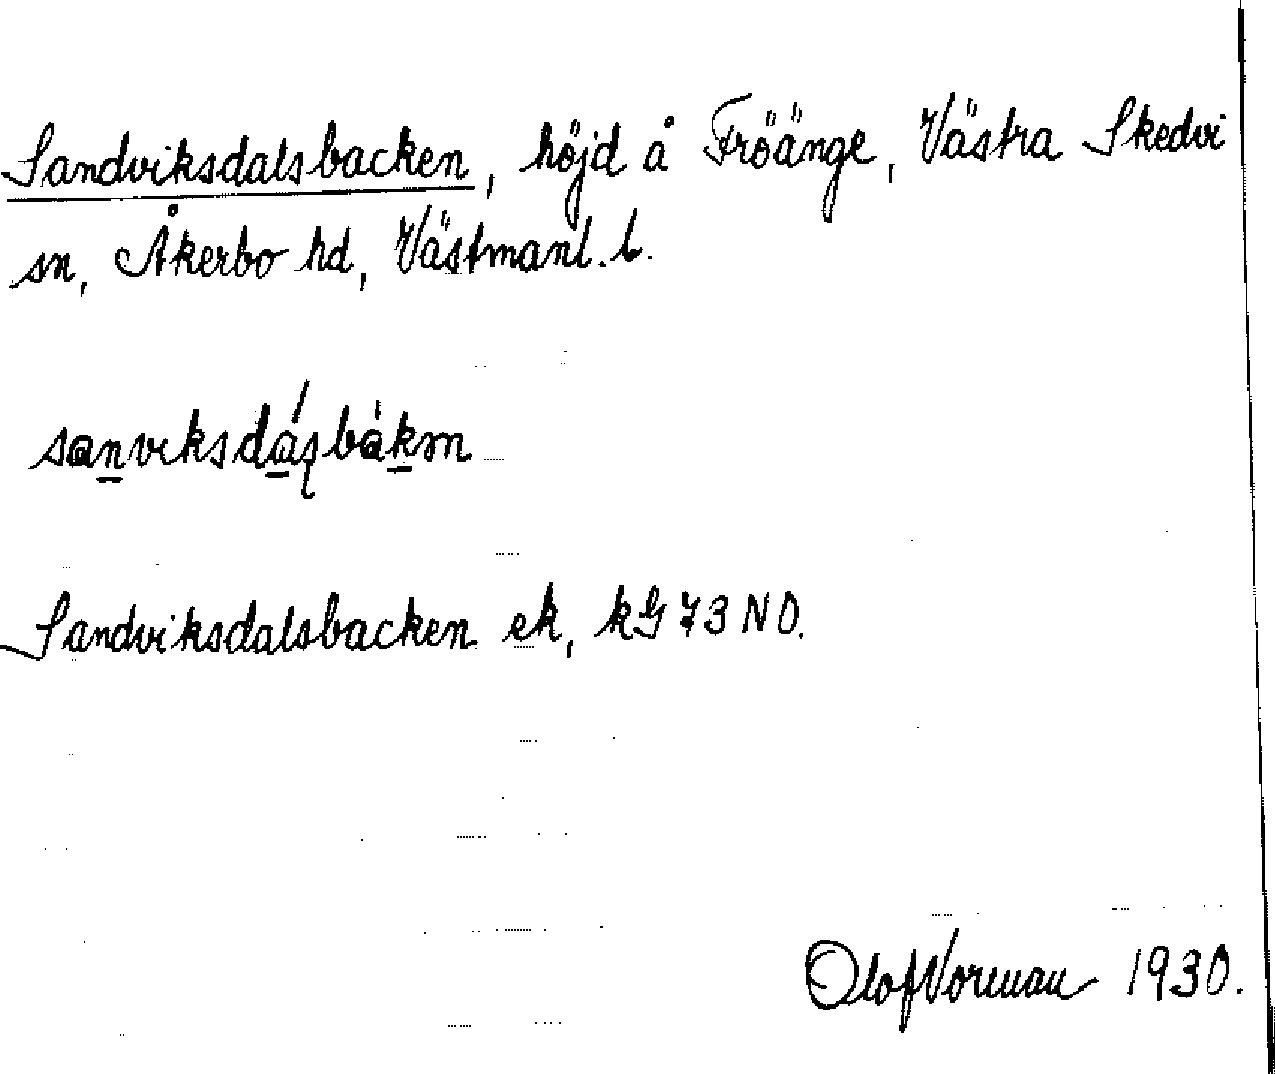 Sandviksdalsbacken, höjd å Fröänge, Västra Skedvi
sn, Åkerbo hd, Västmanl. l.
Sandviksdalsbacken ek, kG 73 NO.
Olof Vorenan 1930.